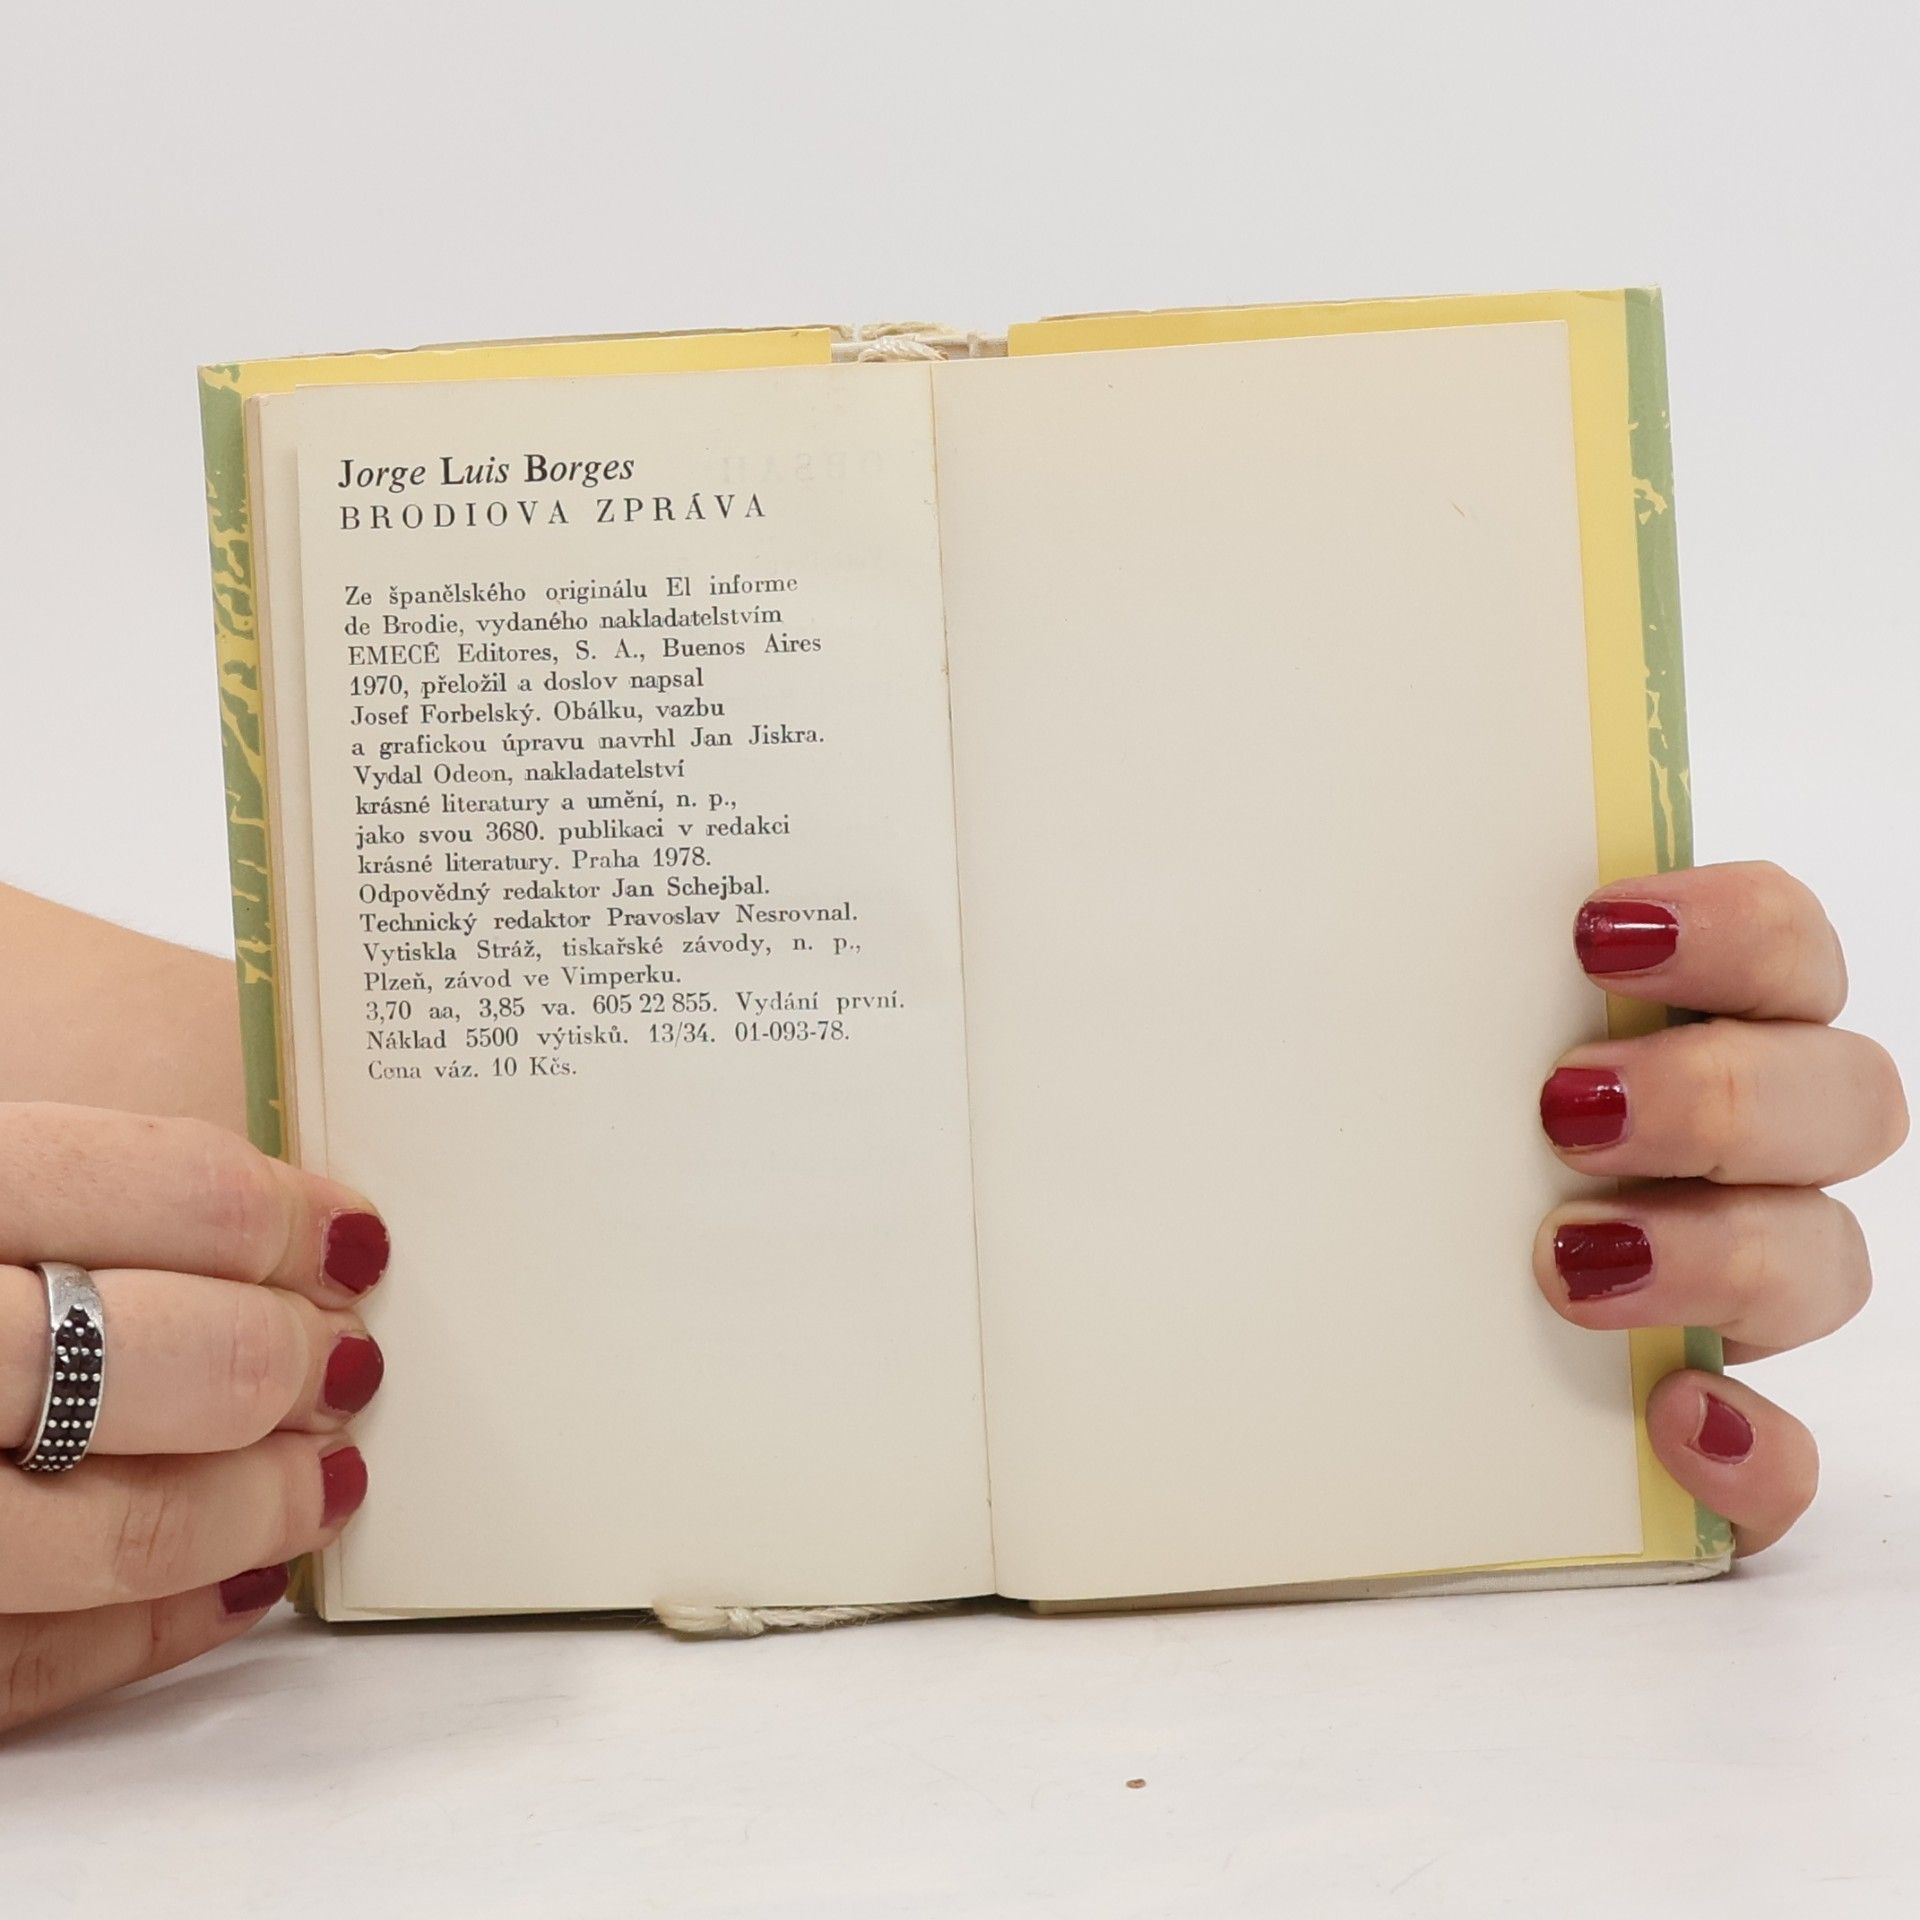 Jorge Luis Borges
BRODIOVA ZPRÁVA
Ze španělského originálu El informe
de Brodie, vydaného nakladatelstvím
EMECÉ Editores, S. A., Buenos Aires
1970, přeložil a doslov napsal
Josef Forbelský. Obálku, vazbu
a grafickou úpravu navrhl Jan Jiskra.
Vydal Odeon, nakladatelství
krásné literatury a umění, n. p.,
jako svou 3680. publikaci v redakci
krásné literatury. Praha 1978.
Odpovědný redaktor Jan Schejbal.
Technický redaktor Pravoslav Nesrovnal.
Vytiskla Stráž, tiskařské závody, n. p.,
Plzeň, závod ve Vimperku.
3,70 aa, 3,85 va. 605 22 855. Vydání první.
Náklad 5500 výtisků. 13/34. 01-093-78.
Cena váz. 10 Kčs.